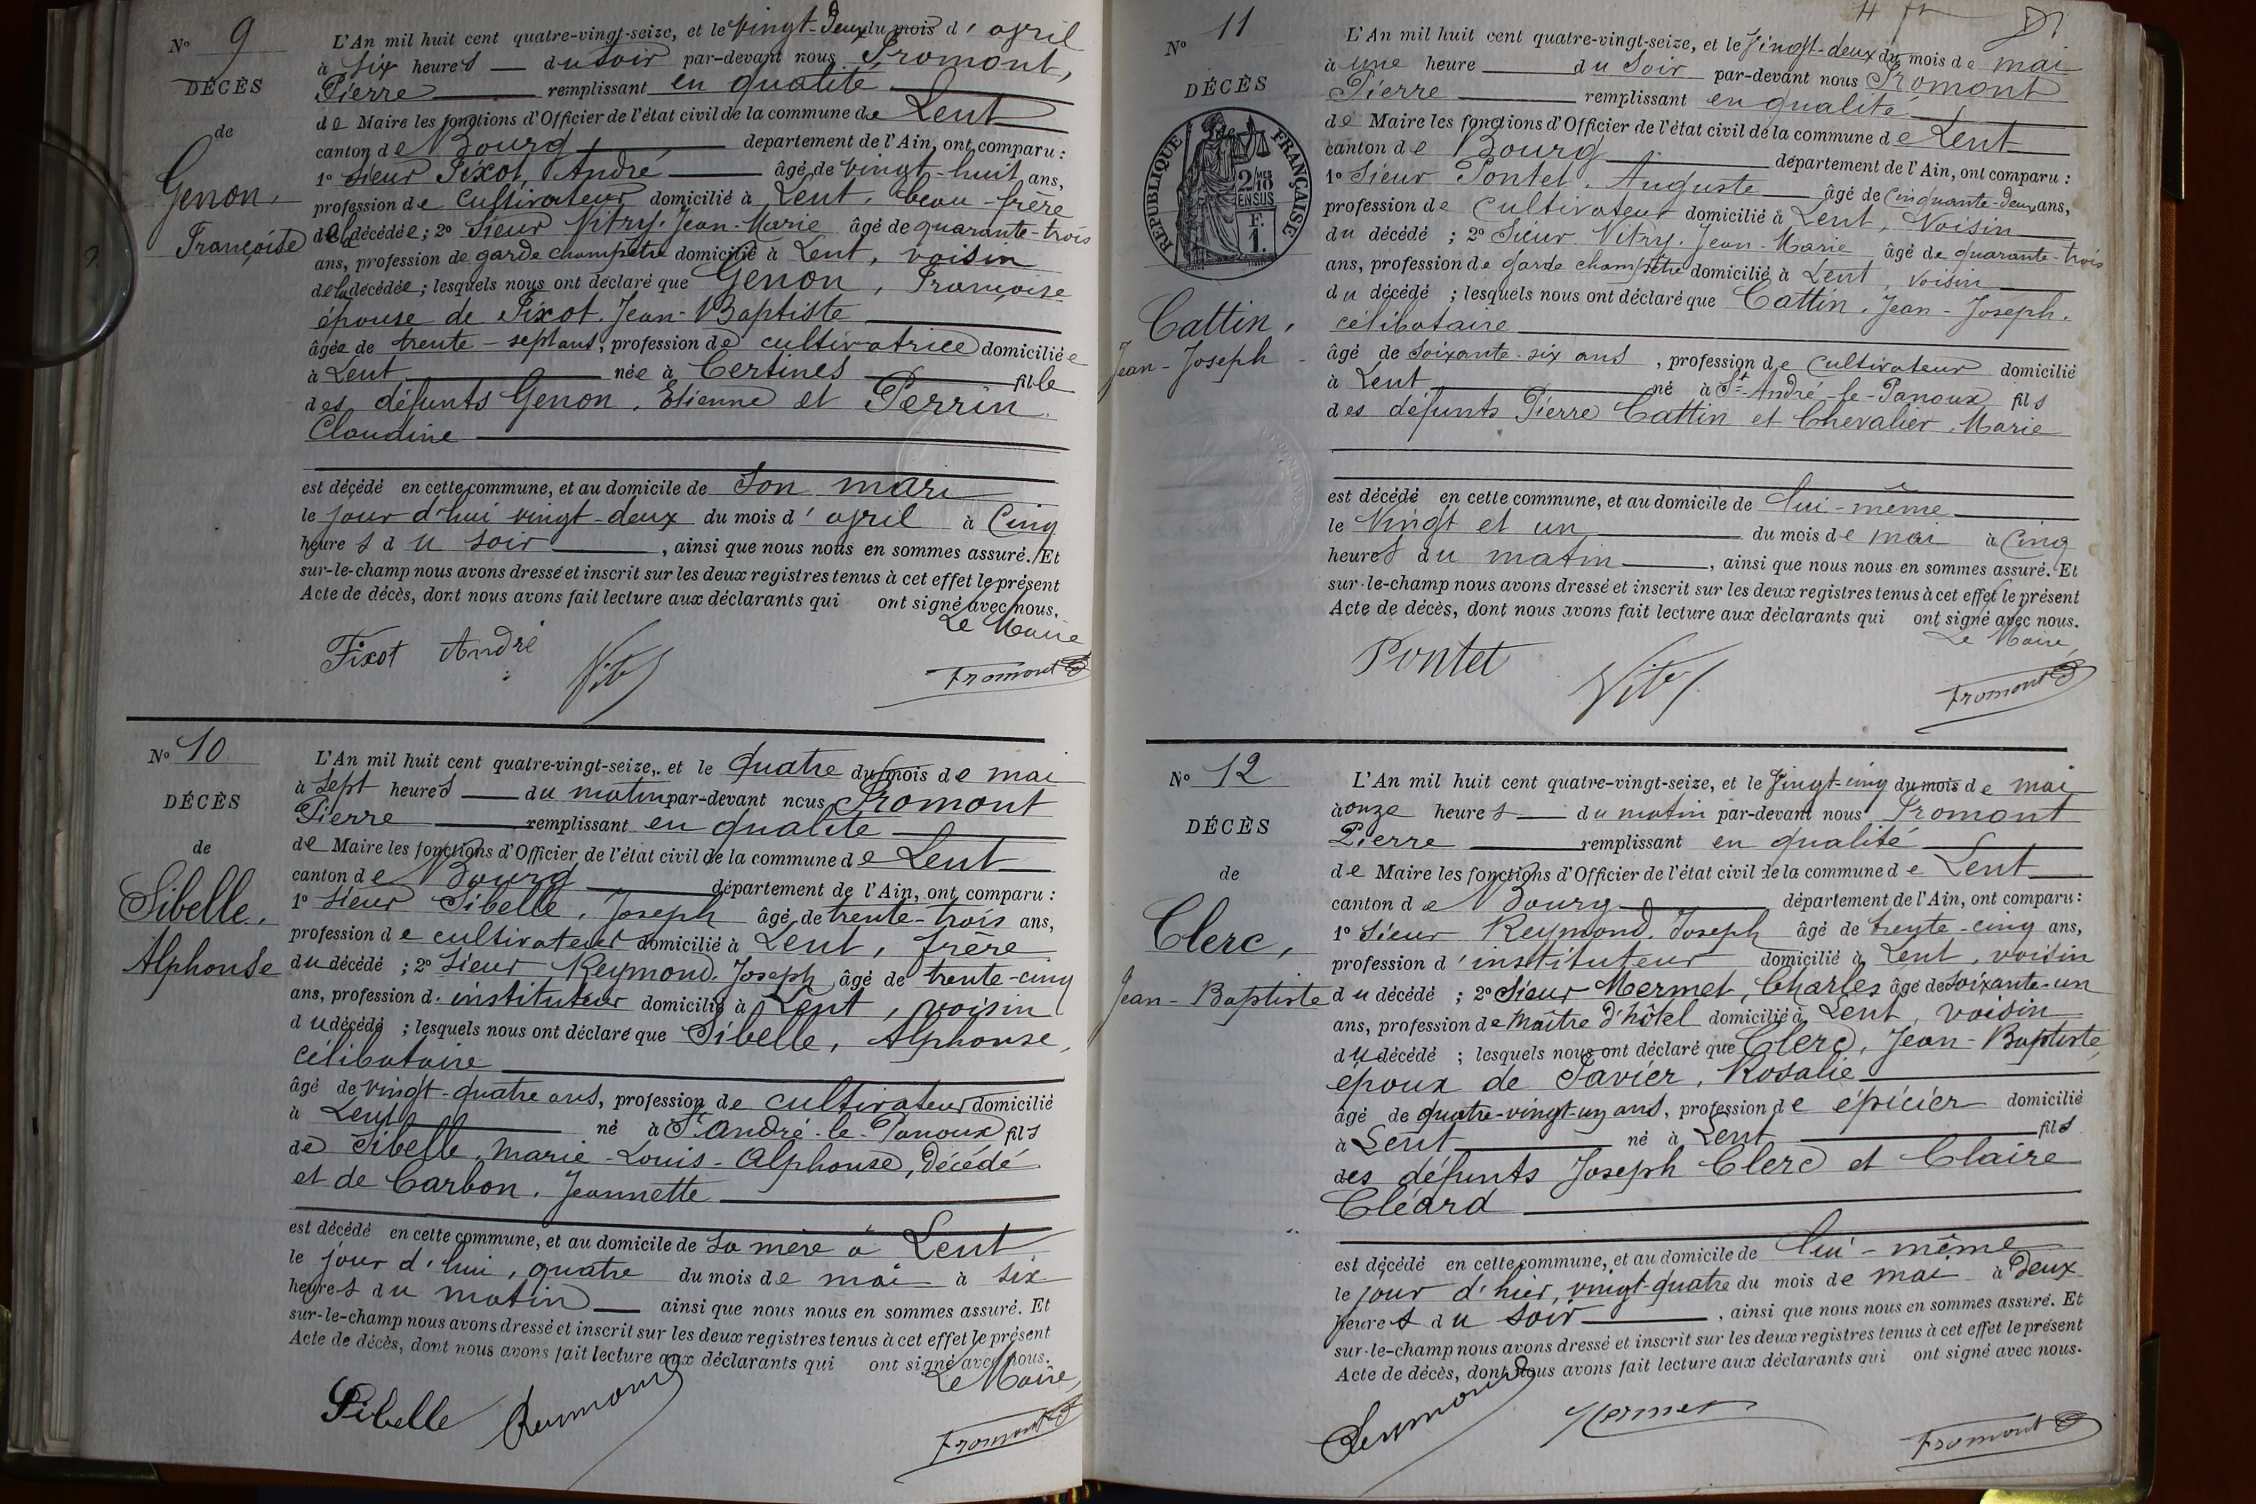 No 9
DÉCÈS
de
Genon,
Françoise
L'An mil huit cent quatre-vingt-seize, et le vingt-deux du mois d'avril
à six heures du soir par-devant nous Fromont,
Pierre remplissant en qualité
de Maire les fonctions d'Officier de l'état civil de la commune de Lent
canton de Bourg département de l'Ain, ont comparu :
1o Sieur Fixot, André âgé de vingt-huit ans,
profession de cultivateur domicilié à Lent, beau-frère
de la décédée ; 2o Sieur Vitry, Jean-Marie âgé de quarante-trois
ans, profession de garde champêtre domicilié à Lent, voisin
de la décédée ; lesquels nous ont déclaré que Genon, Françoise
épouse de Fixot, Jean-Baptiste
âgée de trente-sept ans, profession de cultivatrice domiciliée
à Lent née à Certines fille
des défunts Genon, Etienne et Perrin
Claudine
est décédé en cette commune, et au domicile de son mari
le jour d'hui vingt-deux du mois d'avril à cinq
heures du soir, ainsi que nous nous en sommes assuré. Et
sur-le-champ nous avons dressé et inscrit sur les deux registres tenus à cet effet le présent
Acte de décès, dont nous avons fait lecture aux déclarants qui ont signé avec nous.
Le Maire
Fixot André
Fromont
No 10
DÉCÈS
de
Sibelle,
Alphonse
L'An mil huit cent quatre-vingt-seize, et le quatre du mois de mai
à sept heures du matin par-devant nous Fromont
Pierre remplissant en qualité
de Maire les fonctions d'Officier de l'état civil de la commune de Lent
canton de Bourg département de l'Ain, ont comparu :
1o Sieur Sibelle, Joseph âgé de trente-trois ans,
profession de cultivateur domicilié à Lent, frère
du décédé ; 2o Sieur Reymond, Joseph âgé de trente-cinq
ans, profession d'instituteur domicilié à Lent, voisin
du décédé ; lesquels nous ont déclaré que Sibelle, Alphonse,
célibataire
âgé de vingt-quatre ans, profession de cultivateur domicilié
à Lent né à St André-le-Panoux fils
de Sibelle, Marie-Louis-Alphonse, décédé
et de Carbon, Jeannette
est décédé en cette commune, et au domicile de sa mère à Lent
le jour d'hui, quatre du mois de mai à six
heures du matin ainsi que nous nous en sommes assuré. Et
sur-le-champ nous avons dressé et inscrit sur les deux registres tenus à cet effet le présent
Acte de décès, dont nous avons fait lecture aux déclarants qui ont signé avec nous.
Le Maire,
Sibelle Reymond
Fromont
No 11
DÉCÈS
RÉPUBLIQUE FRANÇAISE
2/10 EN SUS
F. 1.
Cattin,
Jean-Joseph
L'An mil huit cent quatre-vingt-seize, et le vingt-deux du mois de mai
à une heure du soir par-devant nous Fromont
Pierre remplissant en qualité
de Maire les fonctions d'Officier de l'état civil de la commune de Lent
canton de Bourg département de l'Ain, ont comparu :
1o Sieur Pontet, Auguste âgé de cinquante-deux ans,
profession de cultivateur domicilié à Lent, voisin
du décédé ; 2o Sieur Vitry, Jean-Marie âgé de quarante-trois
ans, profession de garde champêtre domicilié à Lent, voisin
du décédé ; lesquels nous ont déclaré que Cattin, Jean-Joseph,
célibataire
âgé de soixante-six ans, profession de cultivateur domicilié
à Lent né à St André-le-Panoux fils
des défunts Pierre Cattin et Chevalier, Marie
est décédé en cette commune, et au domicile de lui-même
le vingt et un du mois de mai à cinq
heures du matin, ainsi que nous nous en sommes assuré. Et
sur-le-champ nous avons dressé et inscrit sur les deux registres tenus à cet effet le présent
Acte de décès, dont nous avons fait lecture aux déclarants qui ont signé avec nous.
Le Maire,
Pontet
Fromont
No 12
DÉCÈS
de
Clerc,
Jean-Baptiste
L'An mil huit cent quatre-vingt-seize, et le vingt-cinq du mois de mai
à onze heures du matin par-devant nous Fromont
Pierre remplissant en qualité
de Maire les fonctions d'Officier de l'état civil de la commune de Lent
canton de Bourg département de l'Ain, ont comparu :
1o Sieur Reymond, Joseph âgé de trente-cinq ans,
profession d'instituteur domicilié à Lent, voisin
du décédé ; 2o Sieur Mermet, Charles âgé de soixante-un
ans, profession de maître d'hôtel domicilié à Lent, voisin
du décédé ; lesquels nous ont déclaré que Clerc, Jean-Baptiste,
époux de Favier, Rosalie
âgé de quatre-vingt-un ans, profession de épicier domicilié
à Lent né à Lent fils
des défunts Joseph Clerc et Claire
Cléard
est décédé en cette commune, et au domicile de lui-même
le jour d'hier, vingt-quatre du mois de mai à deux
heures du soir, ainsi que nous nous en sommes assuré. Et
sur-le-champ nous avons dressé et inscrit sur les deux registres tenus à cet effet le présent
Acte de décès, dont nous avons fait lecture aux déclarants qui ont signé avec nous.
Reymond Mermet
Fromont